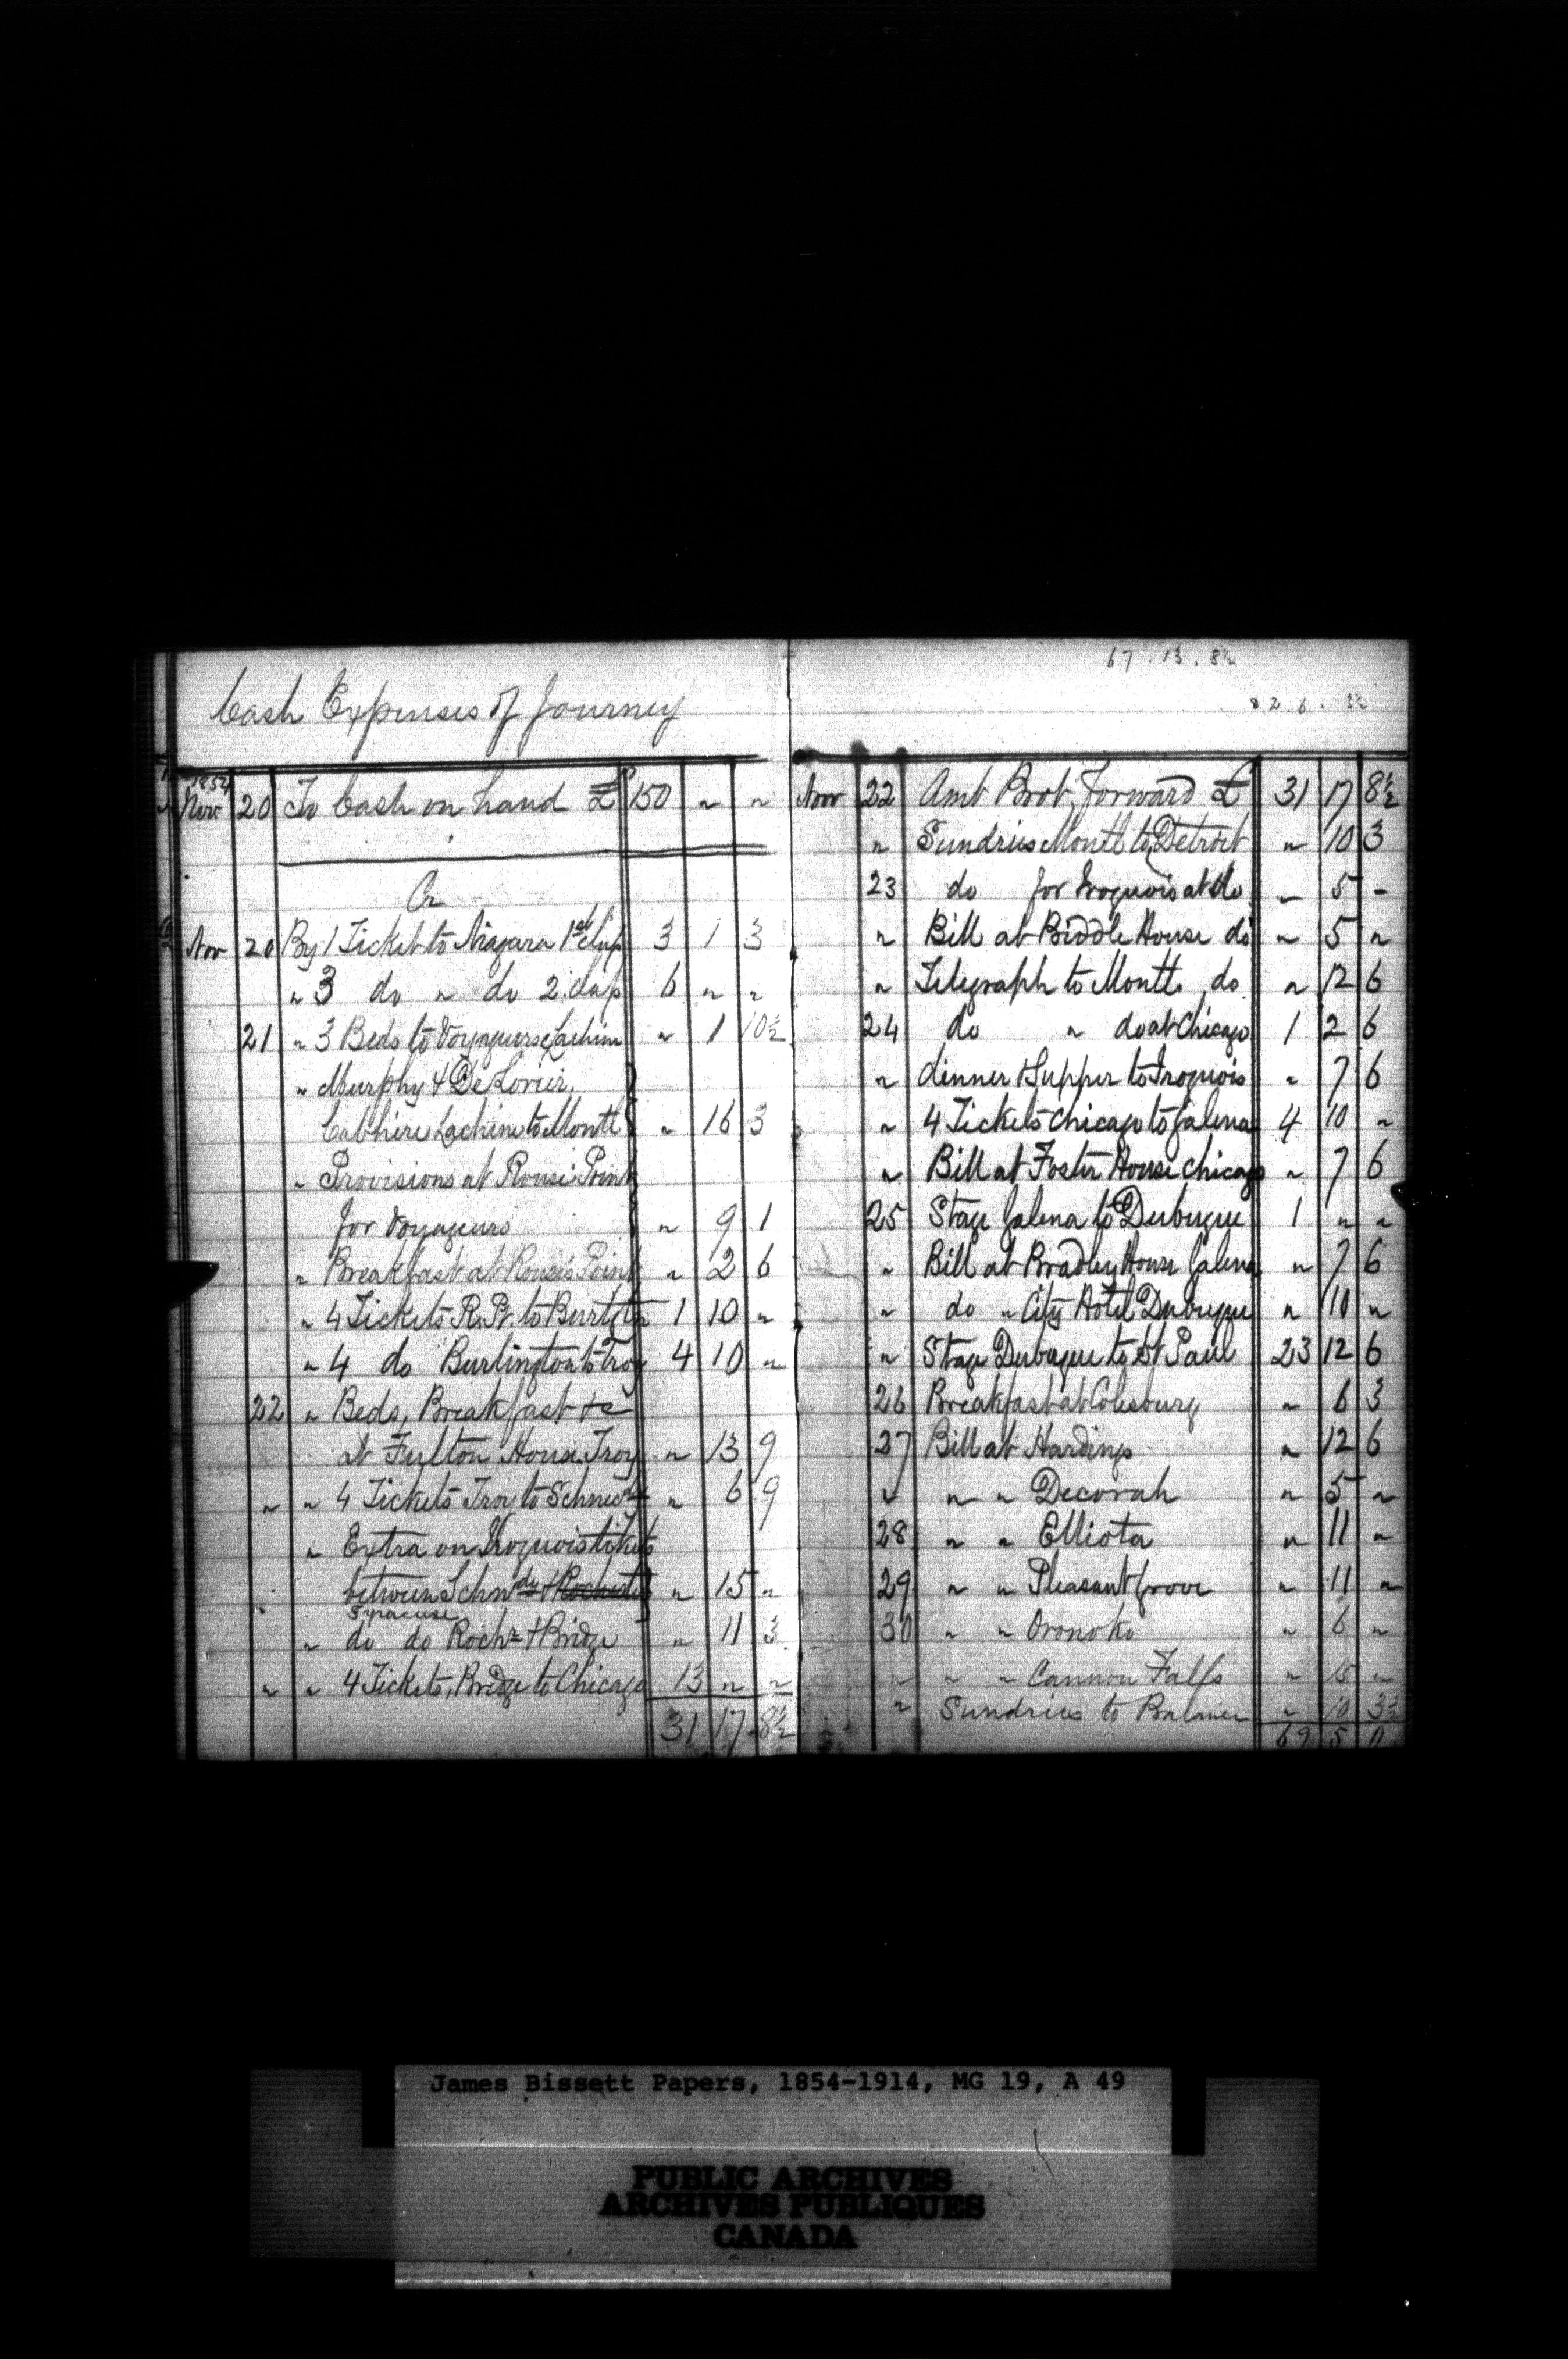 Cash Expenses of Journey
1854
Nov 20 To Cash on hand £ 150 " "
Cr
Nov 20 By 1 Ticket to Niagara 1st Class 3 1 3
" 3 do " do 2 class 6 " "
21 " 3 Beds to Voyageurs Lachine " 1 10½
" Murphy & De Lorier
Cab hire Lachine to Montl " 16 3
" Provisions at Rouses Point
for Voyageurs " 9 1
" Breakfast at Rouse's Point " 2 6
" 4 Tickets R. Pt. to Burlgton 1 10 "
" 4 do Burlington to Troy 4 10 "
22 " Beds, Breakfast &c
at Fulton House Troy " 13 9
" " 4 Tickets Troy to Schnecty " 6 9
" Extra on Iroquois tikets
between Schndy & Rochester " 15 "
Syracuse
" do do Rochr & Bridge " 11 3
" " 4 Tickets, Bridge to Chicago 13 " "
31 17 8½
67 . 13 . 8½
82 . 6 . 3½
Nov 22 Amt Brot. forward £ 31 17 8½
" Sundries Montl to Detroit " 10 3
23 do for Iroquois at do " 5 -
" Bill at Biddle House do " 5 "
" Telegraph to Montl. do " 12 6
24 do " do at Chicago 1 2 6
" dinner & Supper to Iroquois " 7 6
" 4 Tickets Chicago to Galena 4 10 "
" Bill at Foster House Chicago " 7 6
25 Stage Galena to Dubuque 1 " "
" Bill at Bradley House Galena " 7 6
" do " City Hotel Dubuque " 11 "
" Stage Dubuque to St Paul 23 12 6
26 Breakfast at Colesburg " 6 3
27 Bill at Hardings " 12 6
" " " Decorah " 5 "
28 " " Elliota " 11 "
29 " " Pleasant Grove " 11 "
30 " " Oronoko " 6 "
" " " Cannon Falls " 15 "
" Sundries to " 10 3½
69 5 0
James Bissett Papers, 1854-1914, MG 19, A 49
PUBLIC ARCHIVES
ARCHIVES PUBLIQUES
CANADA